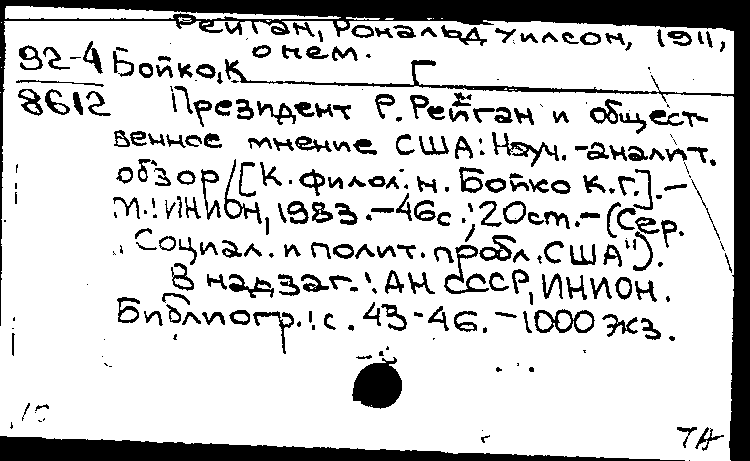 Рейган, Рональд Уилсон, 1911,
о нем.
92-4
8612
Бойко, К Г
Президент Р. Рейган и общест-
венное мнение США: Науч.-аналит.
обзор/[К. филол. н. Бойко К.Г.].—
М.: ИНИОН, 1983.—46с.; 20см.—(Сер.
„Социал. и полит. пробл. США").
В надзаг.: АН СССР, ИНИОН.
Библиогр.: с. 43-46.—1000 экз.
ТА